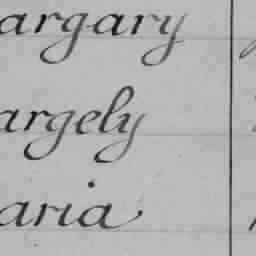 argary
argely
aria